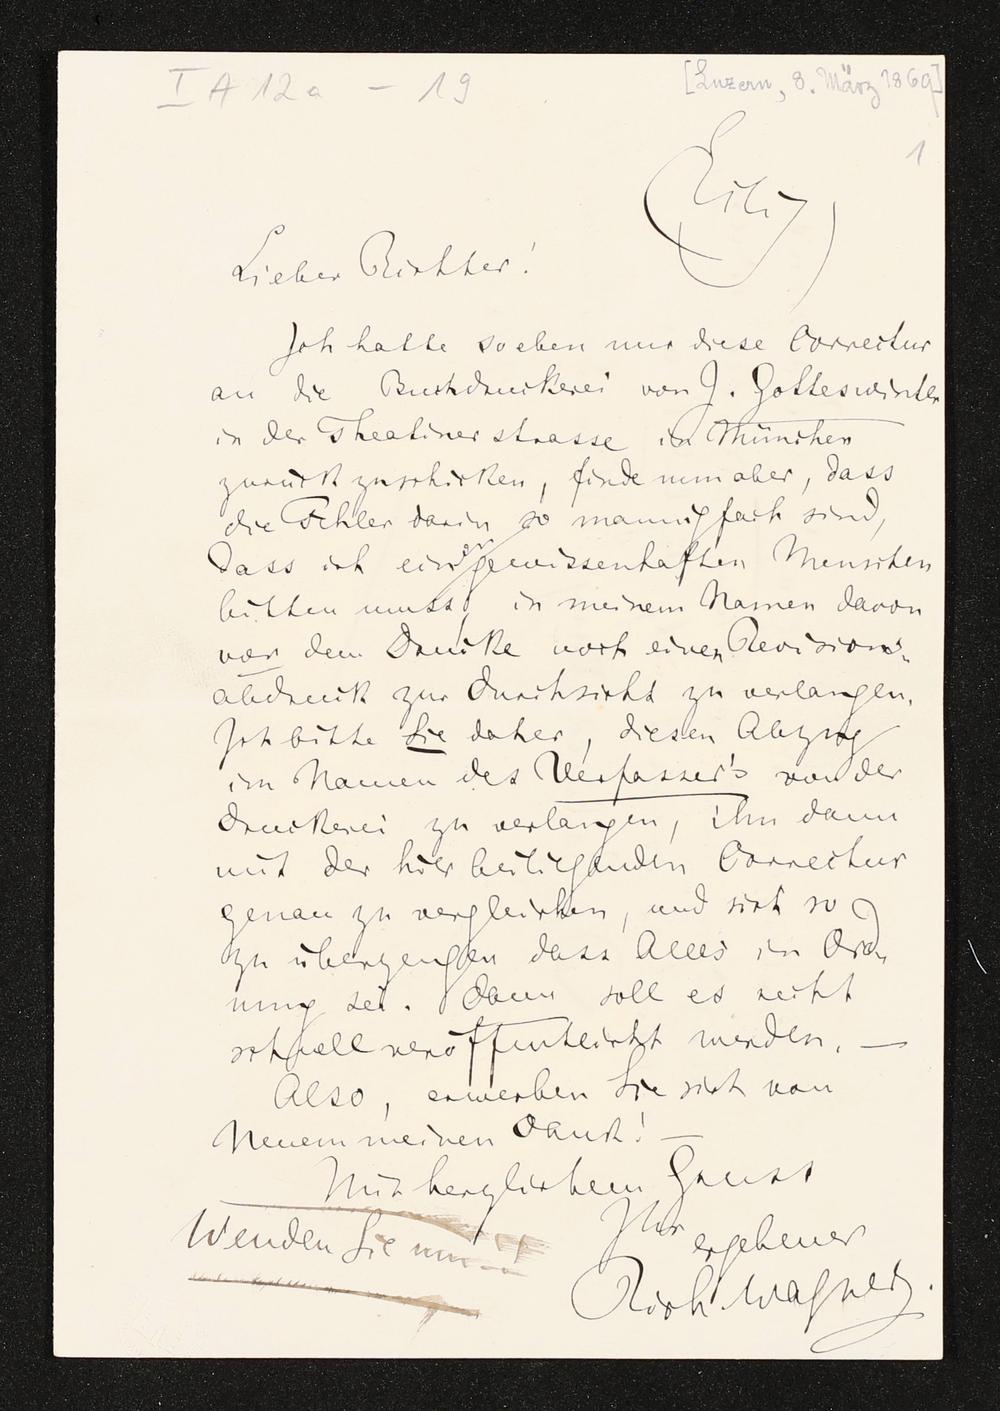 I A 12a – 19
[Luzern, 8. März 1869]
1
Eilig
Lieber Richter!
Ich hatte soeben nur diese Correctur
an die Buchdruckerei von J. Gotteswinter
in der Theatinerstrasse in München
zurückzuschicken, finde nun aber, dass
die Fehler darin so mannigfach sind,
dass ich einen gewissenhaften Menschen
bitten muss, in meinem Namen davon
vor dem Drucke noch einen Revisions-
abdruck zur Durchsicht zu verlangen.
Ich bitte Sie daher, diesen Abzug
im Namen des Verfasser's von der
Druckerei zu verlangen, ihn dann
mit der hier beiliegenden Correctur
genau zu vergleichen, und sich so
zu überzeugen dass Alles in Ord-
nung sei. Dann soll es recht
schnell veröffentlicht werden. —
Also, erwerben Sie sich von
Neuem meinen Dank! —
Mit herzlichem Gruss
Ihr
ergebener
Wenden Sie um!!
Rich. Wagner.